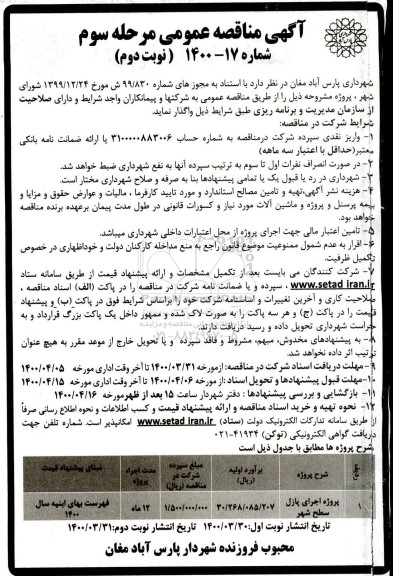 آگهی مناقصه عمومی مرحله سوم
شماره ۱۷-۱۴۰۰ (نوبت دوم)
شهرداری پارس آباد مغان در نظر دارد با استناد به مجوز های شماره ۹۹/۸۳۰ ش مورخ ۱۳۹۹/۱۲/۲۴ شورای
شهر، پروژه مشروحه ذیل را از طریق مناقصه عمومی به شرکتها و پیمانکاران واجد شرایط و دارای صلاحیت
از سازمان مدیریت و برنامه ریزی طبق شرایط ذیل واگذار نماید.
شرایط شرکت در مناقصه:
۱- واریز نقدی سپرده شرکت درمناقصه به شماره حساب ۳۱۰۰۰۰۰۸۸۳۰۰۶ یا ارائه ضمانت نامه بانکی
معتبر(حداقل با اعتبار سه ماهه)
۲- در صورت انصراف نفرات اول تا سوم به ترتیب سپرده آنها به نفع شهرداری ضبط خواهد شد.
۳- شهرداری در رد یا قبول یک یا تمامی پیشنهادها بنا به صرفه و صلاح شهرداری مختار است.
۴- هزینه نشر آگهی،تهیه و تامین مصالح استاندارد و مورد تایید کارفرما ، مالیات و عوارض حقوق و مزایا و
بیمه پرسنل و پروژه و ماشین آلات مورد نیاز و کسورات قانونی در طول مدت پیمان برعهده برنده مناقصه
خواهد بود.
۵- تامین اعتبار مالی جهت اجرای پروژه از محل اعتبارات داخلی شهرداری میباشد.
۶- اقرار به عدم شمول ممنوعیت موضوع قانون راجع به منع مداخله کارکنان دولت و خوداظهاری در خصوص
تکمیل ظرفیت.
۷- شرکت کنندگان می بایست بعد از تکمیل مشخصات و ارائه پیشنهاد قیمت از طریق سامانه ستاد
www.setad iran.ir ، سپرده و یا ضمانت نامه شرکت در مناقصه را در پاکت (الف) اسناد مناقصه ،
صلاحیت کاری و آخرین تغییرات و اساسنامه شرکت خود را براساس شرایط فوق در پاکت (ب) و پیشنهاد
قیمت را در پاکت (ج) و هر سه پاکت را به صورت لاک شده و ممهور داخل یک پاکت بزرگ قرارداد و به
حراست شهرداری تحویل داده و رسید دریافت دارند.
۸- به پیشنهادهای مخدوش، مبهم، مشروط و فاقد سپرده و یا تحویل خارج از موعد مقرر به هیچ عنوان
ترتیب اثر داده نخواهد شد.
۹- مهلت دریافت اسناد شرکت در مناقصه: ازمورخه ۱۴۰۰/۰۳/۳۱ تا آخر وقت اداری مورخه ۱۴۰۰/۰۴/۰۵
۱۰- مهلت قبول پیشنهادها و تحویل اسناد :از مورخه ۱۴۰۰/۰۴/۰۶ تا آخر وقت اداری مورخه ۱۴۰۰/۰۴/۱۵
۱۱- بازگشایی و بررسی پیشنهادها : دفتر شهردار ساعت ۱۵ بعد از ظهرمورخه ۱۴۰۰/۰۴/۱۶
۱۲- نحوه تهیه و خرید اسناد مناقصه و ارائه پیشنهاد قیمت و کسب اطلاعات و نحوه اطلاع رسانی صرفاً
از طریق سامانه تدارکات الکترونیک دولت (ستاد) www.setad iran.ir امکانپذیر است. شماره تلفن جهت
دریافت گواهی الکترونیکی (توکن) ۴۱۹۳۴-۰۲۱
شرح پروژه ها مطابق با جدول ذیل است
ردیف شرح پروژه برآورد اولیه (ریال) مبلغ سپرده شرکت در مناقصه (ریال) مدت اجراء پروژه مبنای پیشنهاد قیمت
۱ پروژه اجرای پازل سطح شهر ۳۰/۲۶۸/۰۸۵/۲۰۷ ۱/۵۰۰/۰۰۰/۰۰۰ ۱۲ ماه فهرست بهای ابنیه سال ۱۴۰۰
تاریخ انتشار نوبت اول:۱۴۰۰/۰۳/۳۰ تاریخ انتشار نوبت دوم:۱۴۰۰/۰۳/۳۱
محبوب فروزنده شهردار پارس آباد مغان